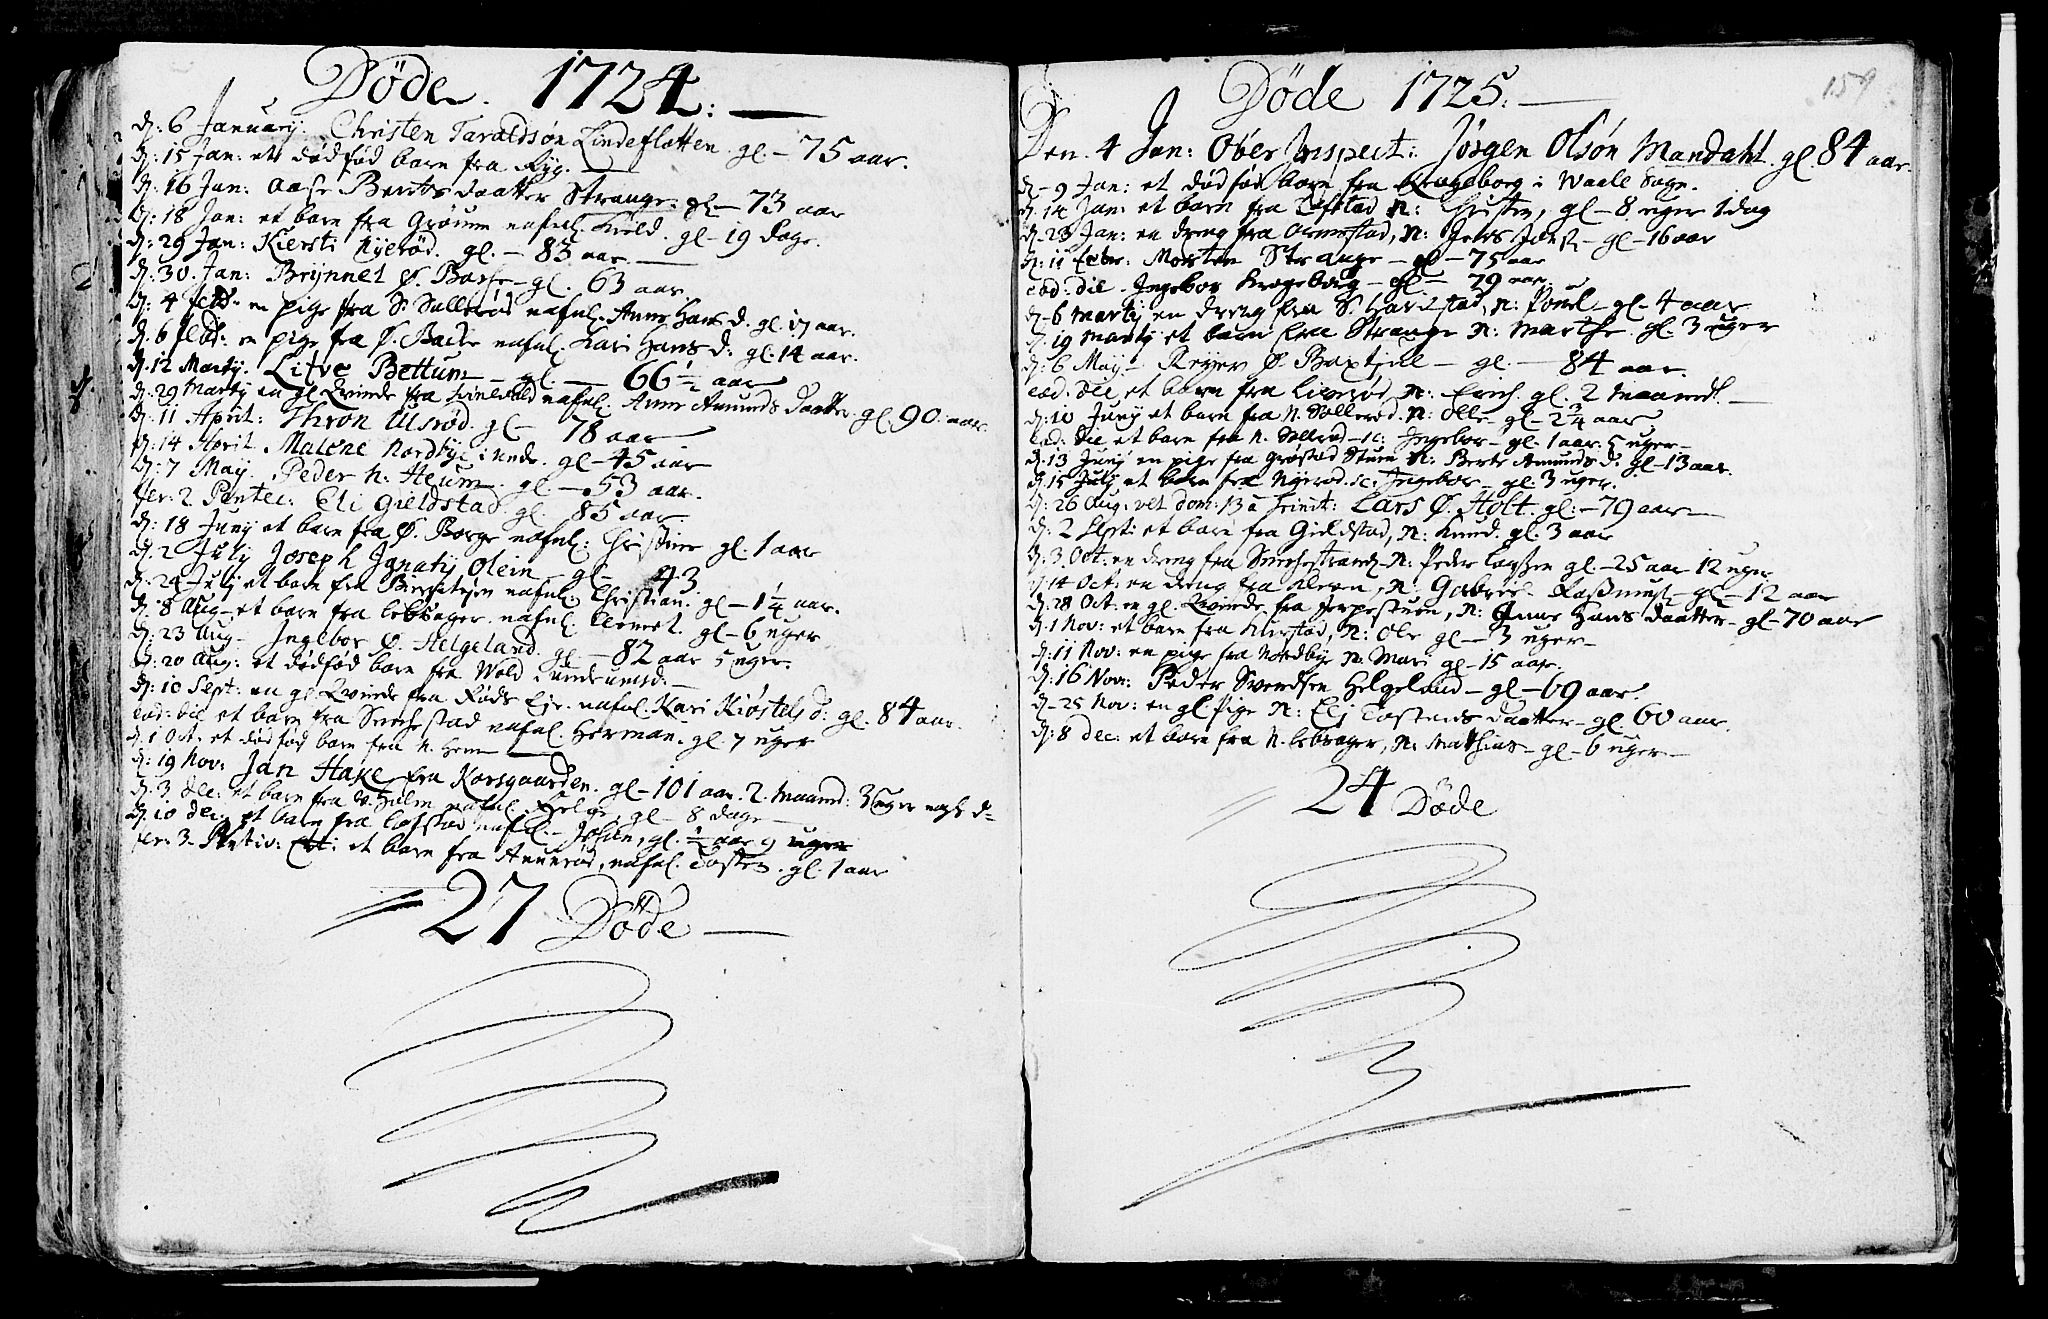 Døde. 1724:
d: 6 January. Christen Taraldsøn Lindeflatten. gl. – 75 aar.
d: 15 Jan: et dødfød barn fra Ryg.
d: 16 Jan: Aase Berntsdaatter Strange. gl – 73 aar
d: 18 Jan: et barn fra Grøum nafnl. Kield. gl – 19 dage.
d: 29 Jan: Kiersti Nyerød. gl. – 83 aar.
d: 30. Jan: Brynnel Ø. Basse – gl. 63 aar.
d: 4 Febr. en pige fra S. Sollerød nafnl. Anne Hans d. gl. 17 aar.
d: 6 en pige fra Ø. nafnl. Kari Hans d: gl. 14 aar.
d. 12 Martij. Litve Bettum – gl. – 66 1/2 aar
d: 29 Martij en gl. Qvinde fra nafnl. Anne Amunds Daatter. gl. 90. aar.
d: 11 April: Thron Ulsrød. gl – 78 aar
d: 14 April. Malene Nordbye gl – 45 aar
d: 7 May. Peder N. Heum. gl. – 53 aar.
fer: 2 Pentec: Eli Gieldstad. gl. 85 aar.
d: 18 Juny et barn fra Ø. Borge nafnl: Christine gl. 1 aar
d. 2 July Joseph Ignatij Olein – gl – 43
d: 24 July et barn fra nafnl: Christian. gl – 1 1/4 aar.
d: 8 Aug – et barn fra Lebsager nafnl. Clemet. gl – 6 uger
d: 23 Aug – Ingebor Ø. Helgeland. gl – 82 aar 5 uger.
d: 20 Aug: et dødfød barn fra Wold
d: 10 Sept: en gl. Qvinde fra Røds Eje. nafnl. Kari Kiøstels d: gl. 84 aar.
eod: die et barn fra Smechestad nafnl. Herman. gl. 7 uger
d. 1 Oct. et dødfød barn fra N. Hem
d: 19 Nov: Jan Hake fra Korsgaarden. gl – 101 aar. 2. Maaned: 3 uger
d: 3 Dec: et barn fra V. Holm nafnl. Helge, gl – 8 dage
d: 10 dec: et barn fra Lofstad nafnl. – Johan, gl. 1/2 aar 9 uger
fer: 3 et barn fra Annerød, nafnl. Tosten. gl. 1 aar
27 Døde

159
Døde 1725:
Den. 4 Jan: Ober Inspect: Jørgen Olsøn Mandahl. gl. 84 aar.
d – 9 Jan: et dødfød barn fra Krogeborg i Waale Sogn.
d. 14 Jan: et barn fra Lofstad N: Christen, gl – 8 uger 1 dag
d – 23 Jan: en dreng fra Ormestad, N: gl – 16 aar
d: 11 Febr: Morten Strange – gl – 75 aar
eod: die. Ingebor Krogeborg – gl – 79 aar.
d – 6 Martij en dreng fra S. Harestad, N: Povel – gl – 4 aar
d. 19 Martij et barn fra Strange N: Marthe. gl. 3 uger
d: 6 May – Reyer Ø. – gl. – 84 aar.
eod. die et barn fra N: Erich. gl. 2 Maaned.
d: 10 Junij et barn fra N. Sollerød. N: Olle – gl – 2 3/4 aar
eod: die et barn fra N. Sollrød – N: Ingebor – gl. 1 aar. 5 uger –
d: 13 Junij en pige fra Grøstad N: Berte Amunds d: gl – 13 aar.
d: 15 July et barn fra Nyerød. N: Ingebor – gl. 3 uger.
d: 26 Aug. vel dom: 13 a Trinit: Lars Ø. Holt. gl: – 79 aar
d: 2 Sept: et barn fra Gieldstad, N: Knud. gl. 3 aar
d: 3 Oct: en dreng fra N: Peder gl – 25 aar 12 uger
d: 14 Oct: en dreng fra N: Gabriel Rasmus – gl – 12 aar
d: 28 Oct: en gl. Qvinde fra N: Anne Hans daatter – gl – 70 aar
d. 1 Nov: et barn fra N: Ole gl – 3 uger –
d: 11 Nov: en pige fra Nordbye N: Mari gl – 15 aar.
d: 16 Nov: Peder Svendsen Helgeland – gl – 69 aar.
d – 25 Nov: en gl. Pige N: Elj Tostens daatter – gl. 60 aar.
d: 8 Dec: et barn fra N. Lebsager, N: Mathias – gl – 6 uger –
24 Døde